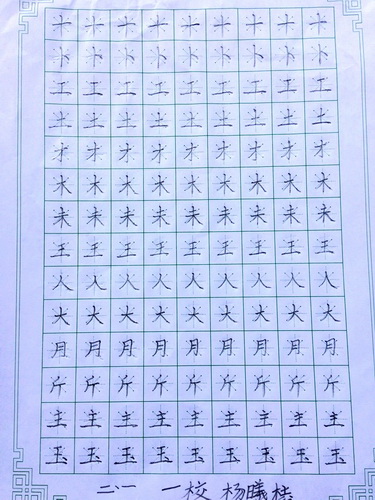 十 十 十 十 十 十 十 十 十
卜 卜 卜 卜 卜 卜 卜 卜 卜
工 工 工 工 工 工 工 工 工
土 土 土 土 土 土 土 土 土
才 才 才 才 才 才 才 才 才
木 木 木 木 木 木 木 木 木
未 未 未 未 未 未 未 未 未
王 王 王 王 王 王 王 王 王
人 人 人 人 人 人 人 人 人
大 大 大 大 大 大 大 大 大
月 月 月 月 月 月 月 月 月
斤 斤 斤 斤 斤 斤 斤 斤 斤
主 主 主 主 主 主 主 主 主
玉 玉 玉 玉 玉 玉 玉 玉 玉
二·一 一校 杨曦桂